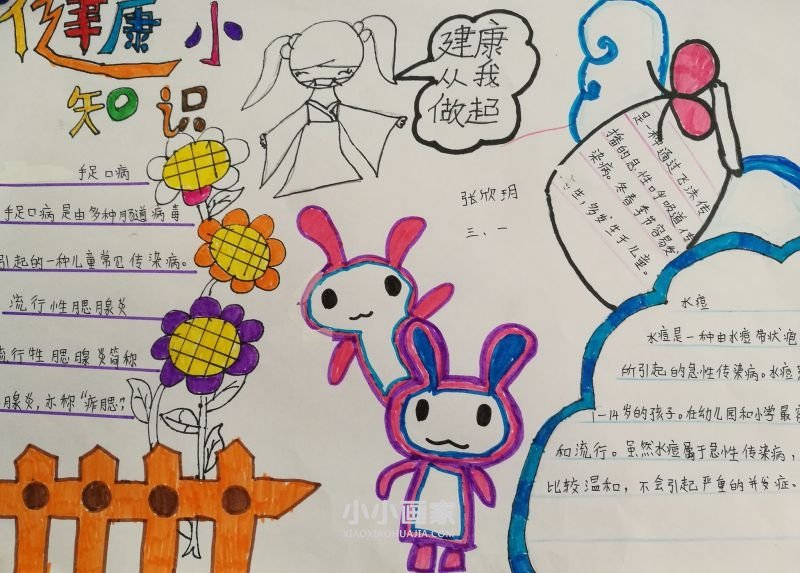 健康小
知识
手足口病
手足口病是由多种肠道病毒
引起的一种儿童常见传染病。
流行性腮腺炎
流行性腮腺炎简称
腺炎，亦称“痄腮”，
建康
从我
做起
张欣玥
三、一
是一种通过飞沫传
播的急性呼吸道传
染病。冬春季节容易发
生，多发生于儿童。
水痘
水痘是一种由水痘带状疱
所引起的急性传染病。水痘
1-14岁的孩子。在幼儿园和小学最容
和流行。虽然水痘属于急性传染病，
比较温和，不会引起严重的并发症。
小小画家
XIAOXIAOHUAJIA.COM